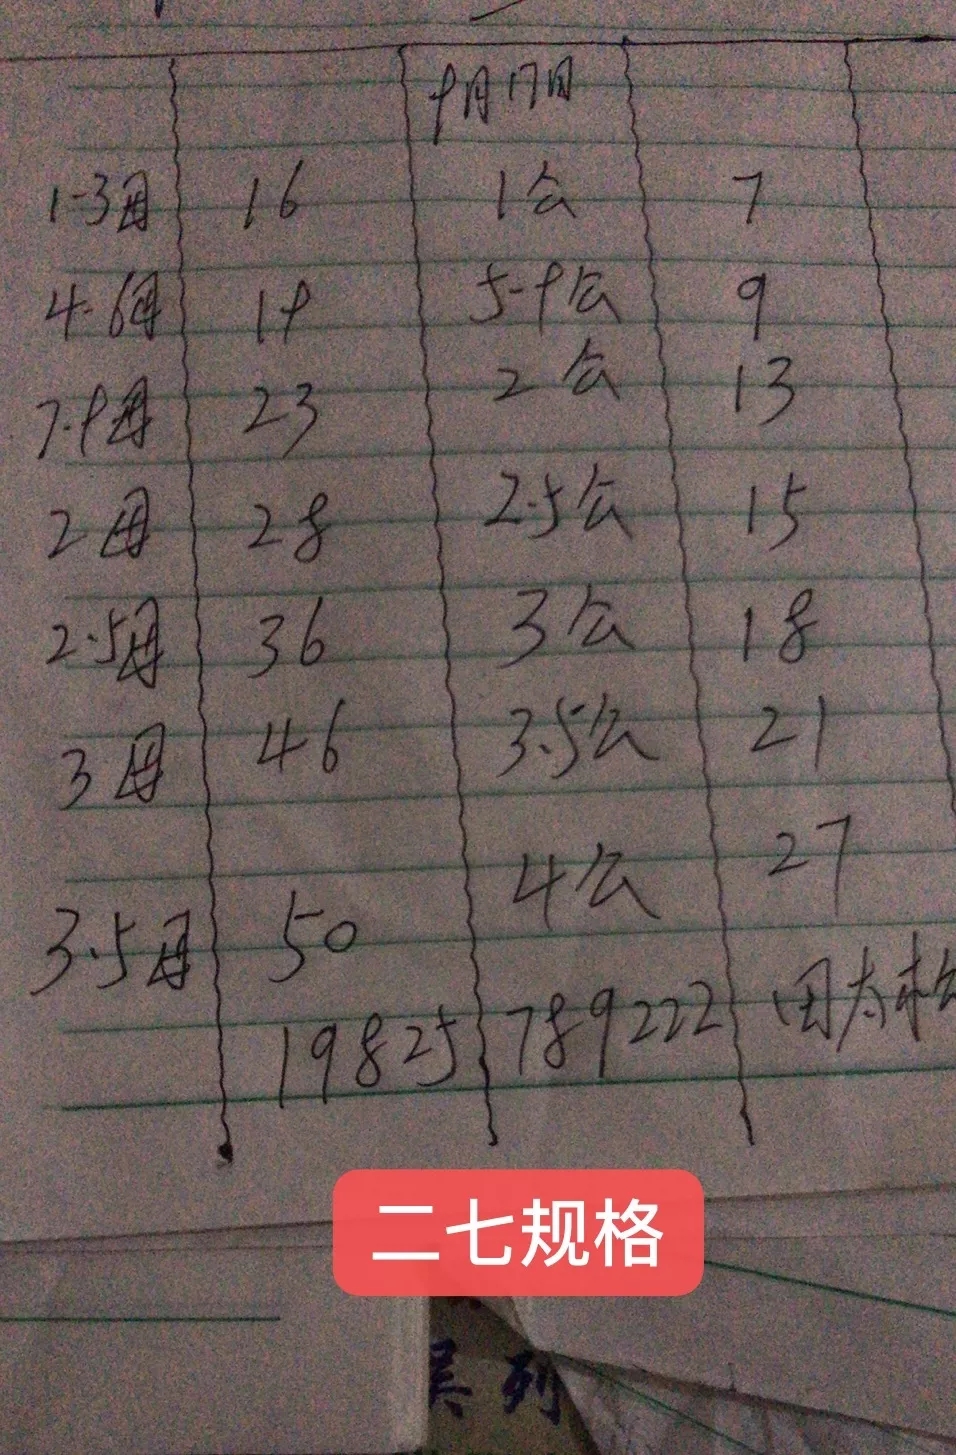 9月17日
1-3母 16 1公 7
4-6母 19 5-9公 9
7-9母 23 2公 13
2母 28 2.5公 15
2.5母 36 3公 18
3母 46 3.5公 21
4公 27
3.5母 50
19825 789222 田太松
二七规格
吴 列